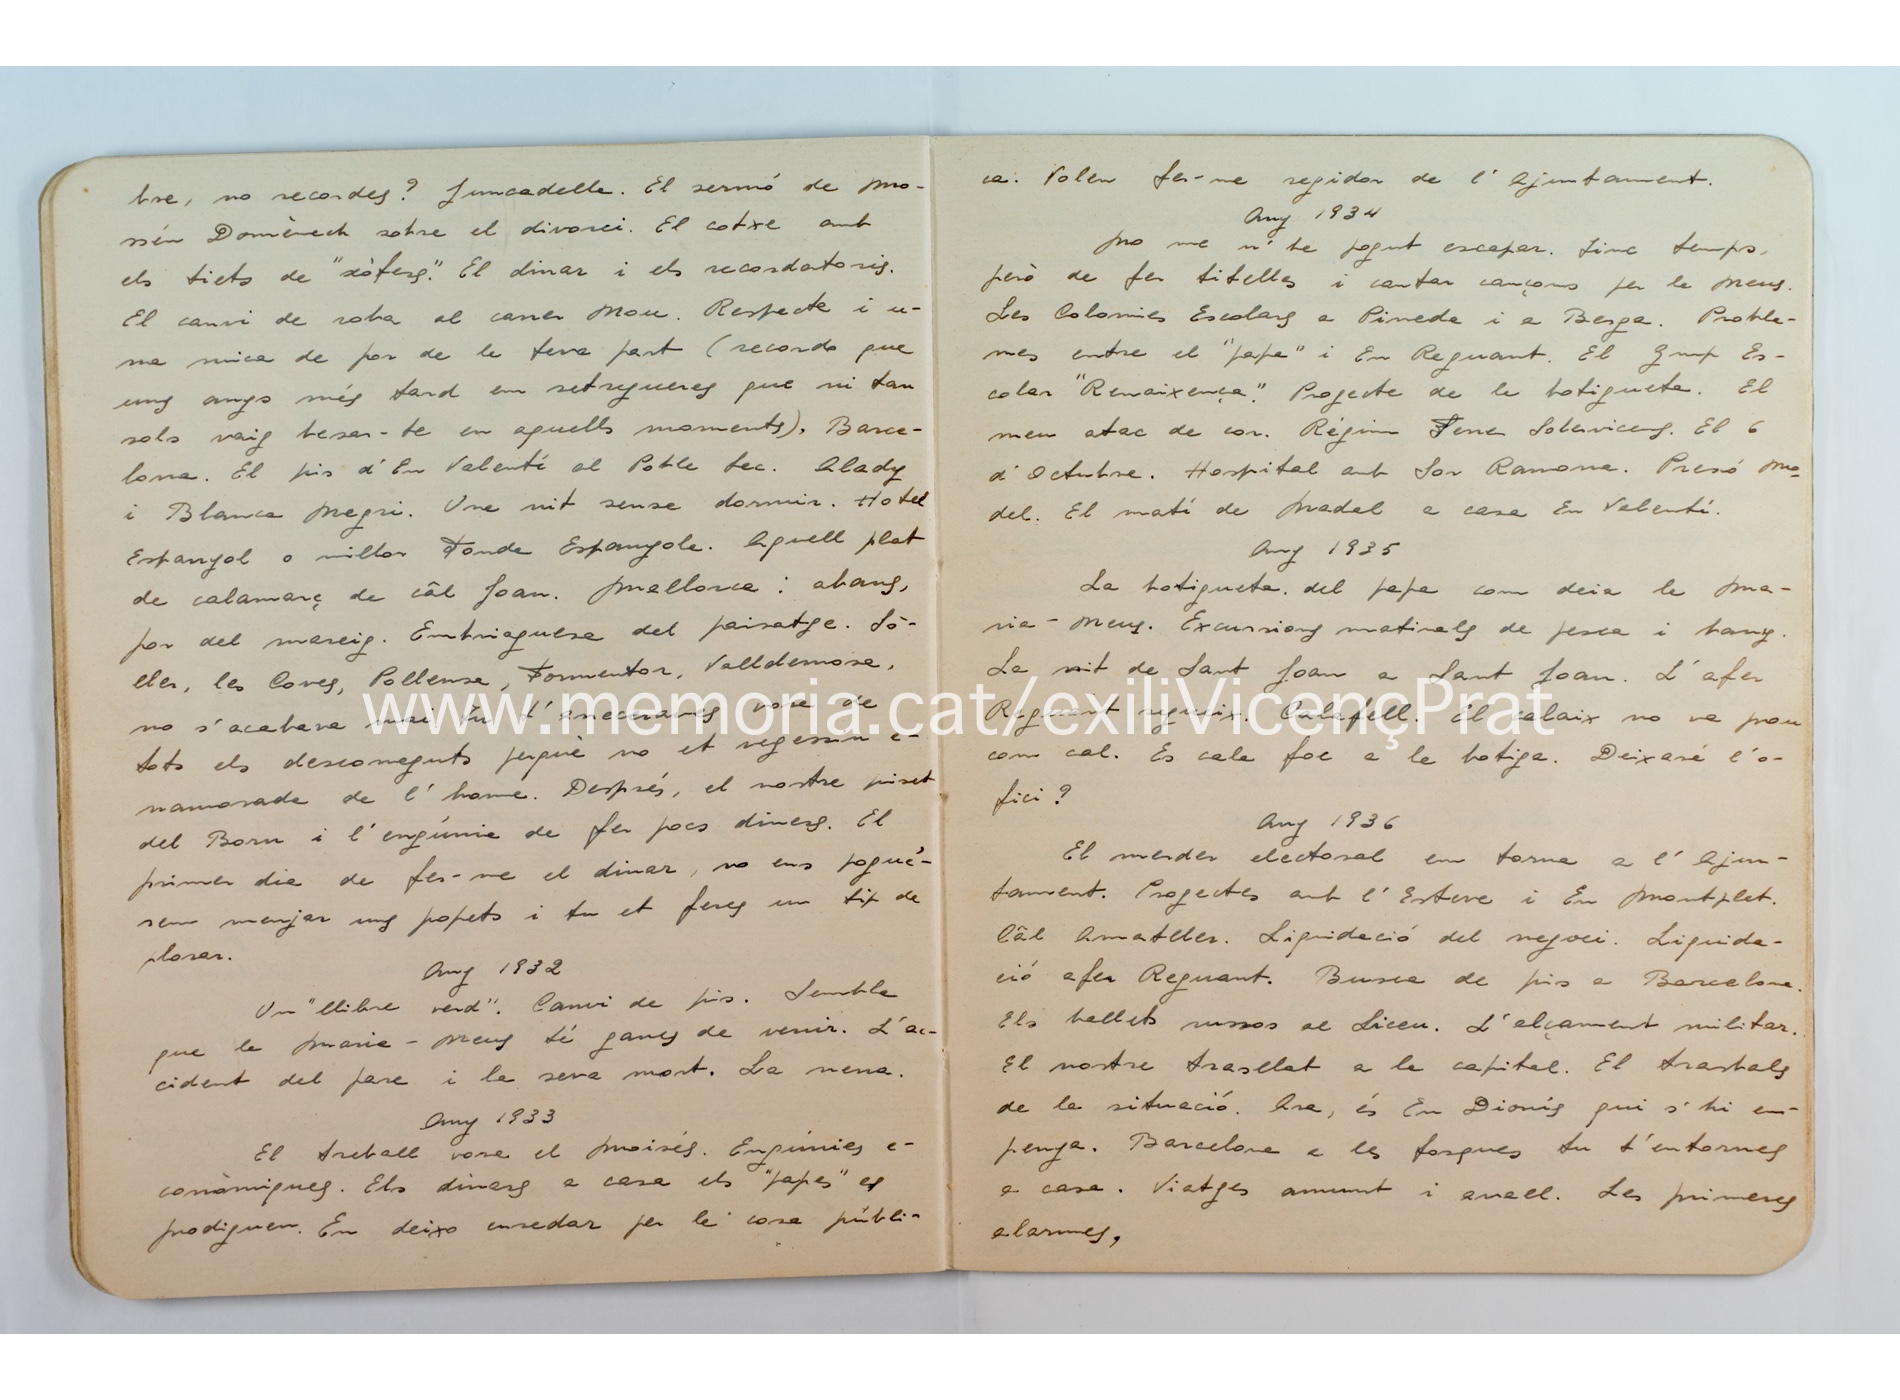 bre, no recordes? Juncadella. El sermó de Mo-
ssén Domènech sobre el divorci. El cotxe amb
els tiets de "xòfers". El dinar i els recordatoris.
El canvi de roba al carrer Nou. Respecte i u-
na mica de por de la teva part (recordo que
uns anys més tard em retregueres que ni tan
sols vaig besar-te en aquells moments), Barce-
lona. El pis d'En Valentí al Poble Sec. Alady
i Blanca Negri. Una nit sense dormir. Hotel
Espanyol o millor Fonda Espanyola. Aquell plat
de calamarç de câl Joan. Mallorca: abans,
por del mareig. Embriaguesa del paisatge. Sò-
ller, les Coves, Pollensa, Formentor, Valldemosa,
no s'acabava mai. Tu t'anecoraves vora de
tots els desconeguts perquè no et vegessin e-
namorada de l'home. Després, el nostre piset
del Born i l'engúnia de fer pocs diners. El
primer dia de fer-me el dinar, no ens pogué-
rem menjar uns popets i tu et feres un tip de
plorar.
Any 1932
Un "llibre verd". Canvi de pis. Sembla
que la Maria-Neus té ganes de venir. L'ac-
cident del pare i la seva mort. La nena.
Any 1933
El treball vora el Moisés. Engúnies e-
conòmiques. Els dinars a casa els "papes" es
prodiguen. Em deixo enredar per la cosa públi-
ca. Volen fer-me regidor de l'Ajuntament.
Any 1934
No me n'he pogut escapar. Tinc temps,
però de fer titelles i cantar cançons per la Neus.
Les Colonies Escolars a Pineda i a Berga. Proble-
mes entre el "papa" i En Reguant. El Grup Es-
colar "Renaixença". Projecte de la botigueta. El
meu atac de cor. Régim Ferrer Solervicens. El 6
d'Octubre. Hospital amb Sor Ramona. Presó Mo-
del. El matí de Nadal a casa En Valentí.
Any 1935
La botigueta del papa com deia la Ma-
ria-Neus. Excursions matinals de pesca i bany.
La nit de Sant Joan a Sant Joan. L'afer
Reguant segueix. Calafell. El calaix no va prou
com cal. Es cala foc a la botiga. Deixaré l'o-
fici?
Any 1936
El merder electoral em torna a l'Ajun-
tament. Projectes amb l'Esteve i En Montplet.
Câl Amatller. Liquidació del negoci. Liquida-
ció afer Reguant. Busca de pis a Barcelona.
Els ballets russos al Liceu. L'alçament militar.
El nostre trasllat a la capital. El trasbals
de la situació. Ara, és En Dionís qui s'hi em-
penya. Barcelona a les fosques tu t'entornes
a casa. Viatges amunt i avall. Les primeres
alarmes,
www.memoria.cat/exiliVicençPrat